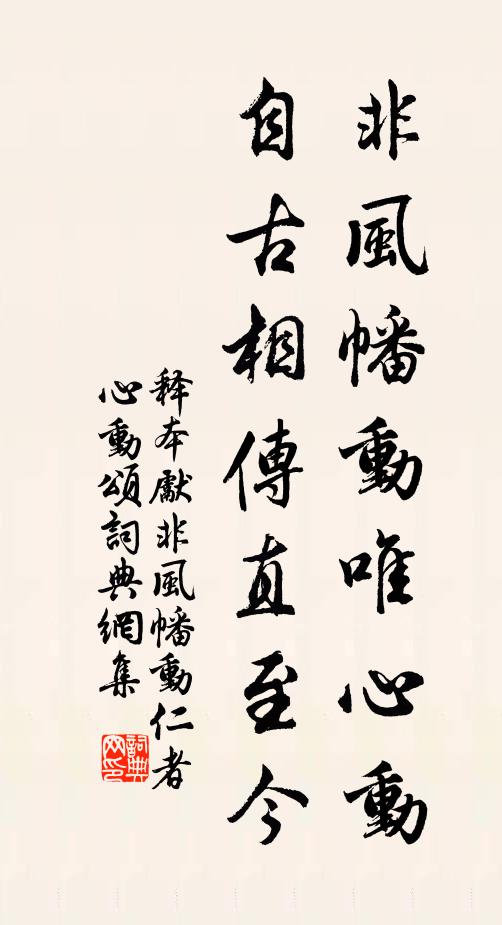 非風幡動唯心動
自古相傳直至今
释本獻非風幡動仁者
心動頌詞典網集
詞典
网印